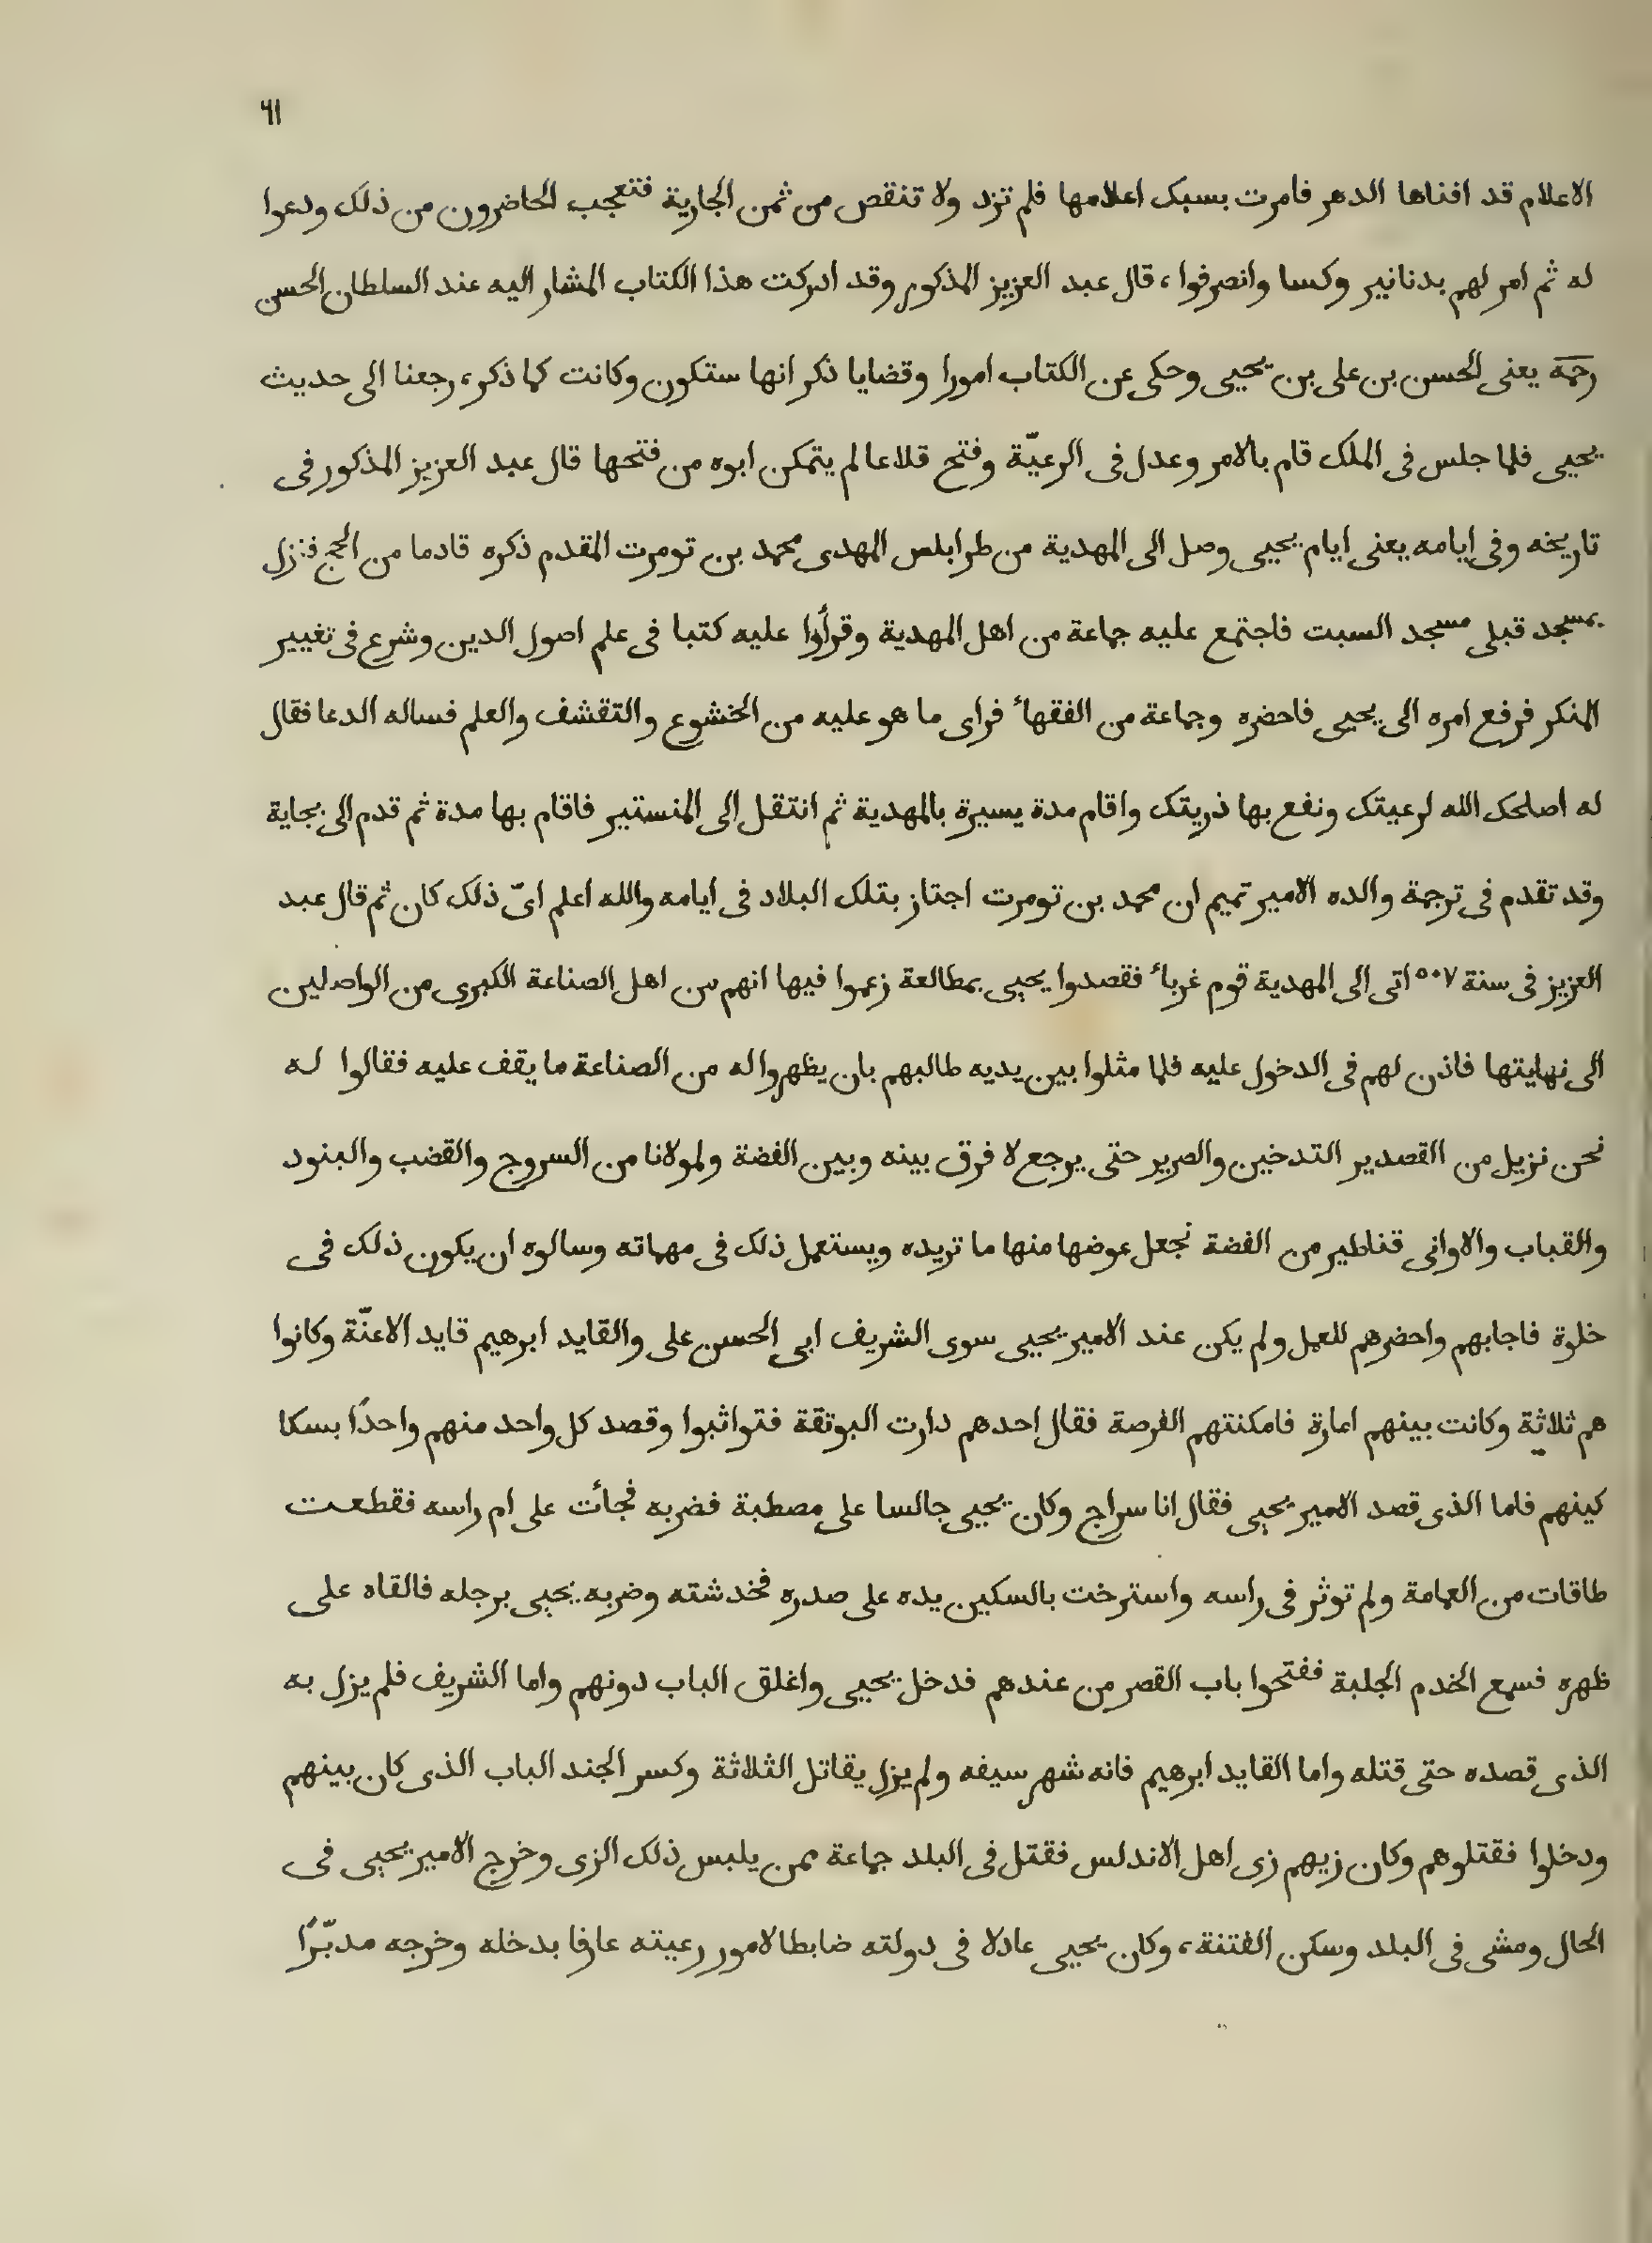 ٦١
الاعلام قد افناها الدهر فامرت بسبك اعلامها فلم تزد ولا تنقص من ثمن الجارية فتعجب الحاضرون من ذلك ودعوا
له ثم امر لهم بدنانير وكسا وانصرفوا، قال عبد العزيز المذكور وقد ادركت هذا الكتاب المشار اليه عند السلطان الحسن
رحمه يعنى الحسن بن على بن يحيى وحكى عن الكتاب امورا وقضايا ذكر انها ستكون وكانت كما ذكر، رجعنا الى حديث
يحيى فلما جلس فى الملك قام بالامر وعدل فى الرعيّة وفتح قلاعا لم يتمكن ابوه من فتحها قال عبد العزيز المذكور فى
تاريخه وفى ايامه يعنى ايام يحيى وصل الى المهدية من طرابلس المهدى محمد بن تومرت المقدم ذكره قادما من الحج فنزل
بمسجد قبلى مسجد السبت فاجتمع عليه جماعة من اهل المهدية وقرأوا عليه كتبا فى علم اصول الدين وشرع فى تغيير
المنكر فرفع امره الى يحيى فاحضره وجماعة من الفقهاء فراى ما هو عليه من الخشوع والتقشف والعلم فساله الدعا فقال
له اصلحك الله لرعيتك ونفع بها ذريتك واقام مدة يسيرة بالمهدية ثم انتقل الى المنستير فاقام بها مدة ثم قدم الى بجاية
وقد تقدم فى ترجمة والده الامير تميم ان محمد بن تومرت اجتاز بتلك البلاد فى ايامه والله اعلم اىّ ذلك كان ثم قال عبد
العزيز فى سنة ٥٠٧ اتى الى المهدية قوم غرباء فقصدوا يحيى بمطالعة زعموا فيها انهم من اهل الصناعة الكبرى من الواصلين
الى نهايتها فاذن لهم فى الدخول عليه فلما مثلوا بين يديه طالبهم بان يظهروا له من الصناعة ما يقف عليه فقالوا له
نحن نزيل من القصدير التدخين والصرير حتى يرجع لا فرق بينه وبين الفضة ولمولانا من السروج والقضب والبنود
والقباب والاوانى قناطير من الفضة نجعل عوضها منها ما تريده ويستعمل ذلك فى مهماته وسالوه ان يكون ذلك فى
خلوة فاجابهم واحضرهم للعمل ولم يكن عند الامير يحيى سوى الشريف ابى الحسن على والقايد ابرهيم قايد الاعنّة وكانوا
هم ثلاثة وكانت بينهم امارة فامكنتهم الفرصة فقال احدهم دارت البوتقة فتواثبوا وقصد كل واحد منهم واحدًا بسكا
كينهم فاما الذى قصد الامير يحيى فقال انا سراج وكان يحيى جالسا على مصطبة فضربه فجأت على ام راسه فقطعت
طاقات من العمامة ولم توثر فى راسه واسترخت بالسكين يده على صدره فخدشته وضربه يحيى برجله فالقاه على
ظهره فسمع الخدم الجلبة ففتحوا باب القصر من عندهم فدخل يحيى واغلق الباب دونهم واما الشريف فلم يزل به
الذى قصده حتى قتله واما القايد ابرهيم فانه شهر سيفه ولم يزل يقاتل الثلاثة وكسر الجند الباب الذى كان بينهم
ودخلوا فقتلوهم وكان زيهم زى اهل الاندلس فقتل فى البلد جماعة ممن يلبس ذلك الزى وخرج الامير يحيى فى
الحال ومشى فى البلد وسكن الفتنة، وكان يحيى عادلا فى دولته ضابطا لامور رعيته عارفا بدخله وخرجه مدبّرًا